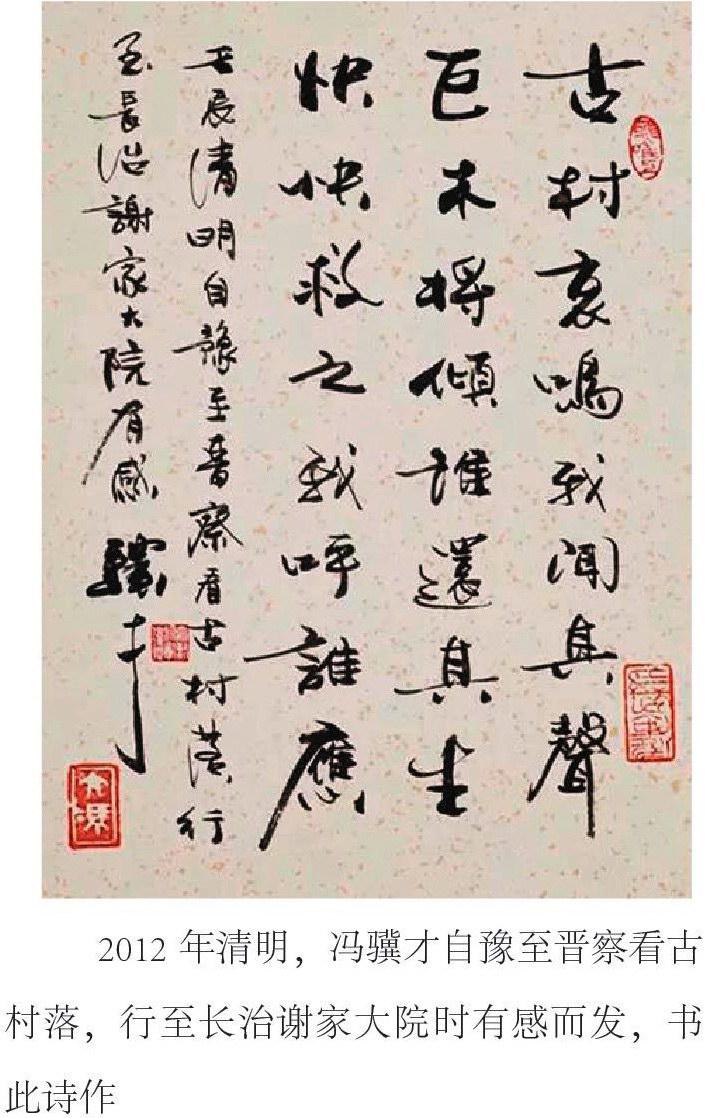 古村哀鳴我闻其聲
巨木将傾誰還其生
快快救之我呼誰應
壬辰清明自豫至晋察看古村落行
至長治謝家大院有感 驥才
2012 年清明，冯骥才自豫至晋察看古
村落，行至长治谢家大院时有感而发，书
此诗作